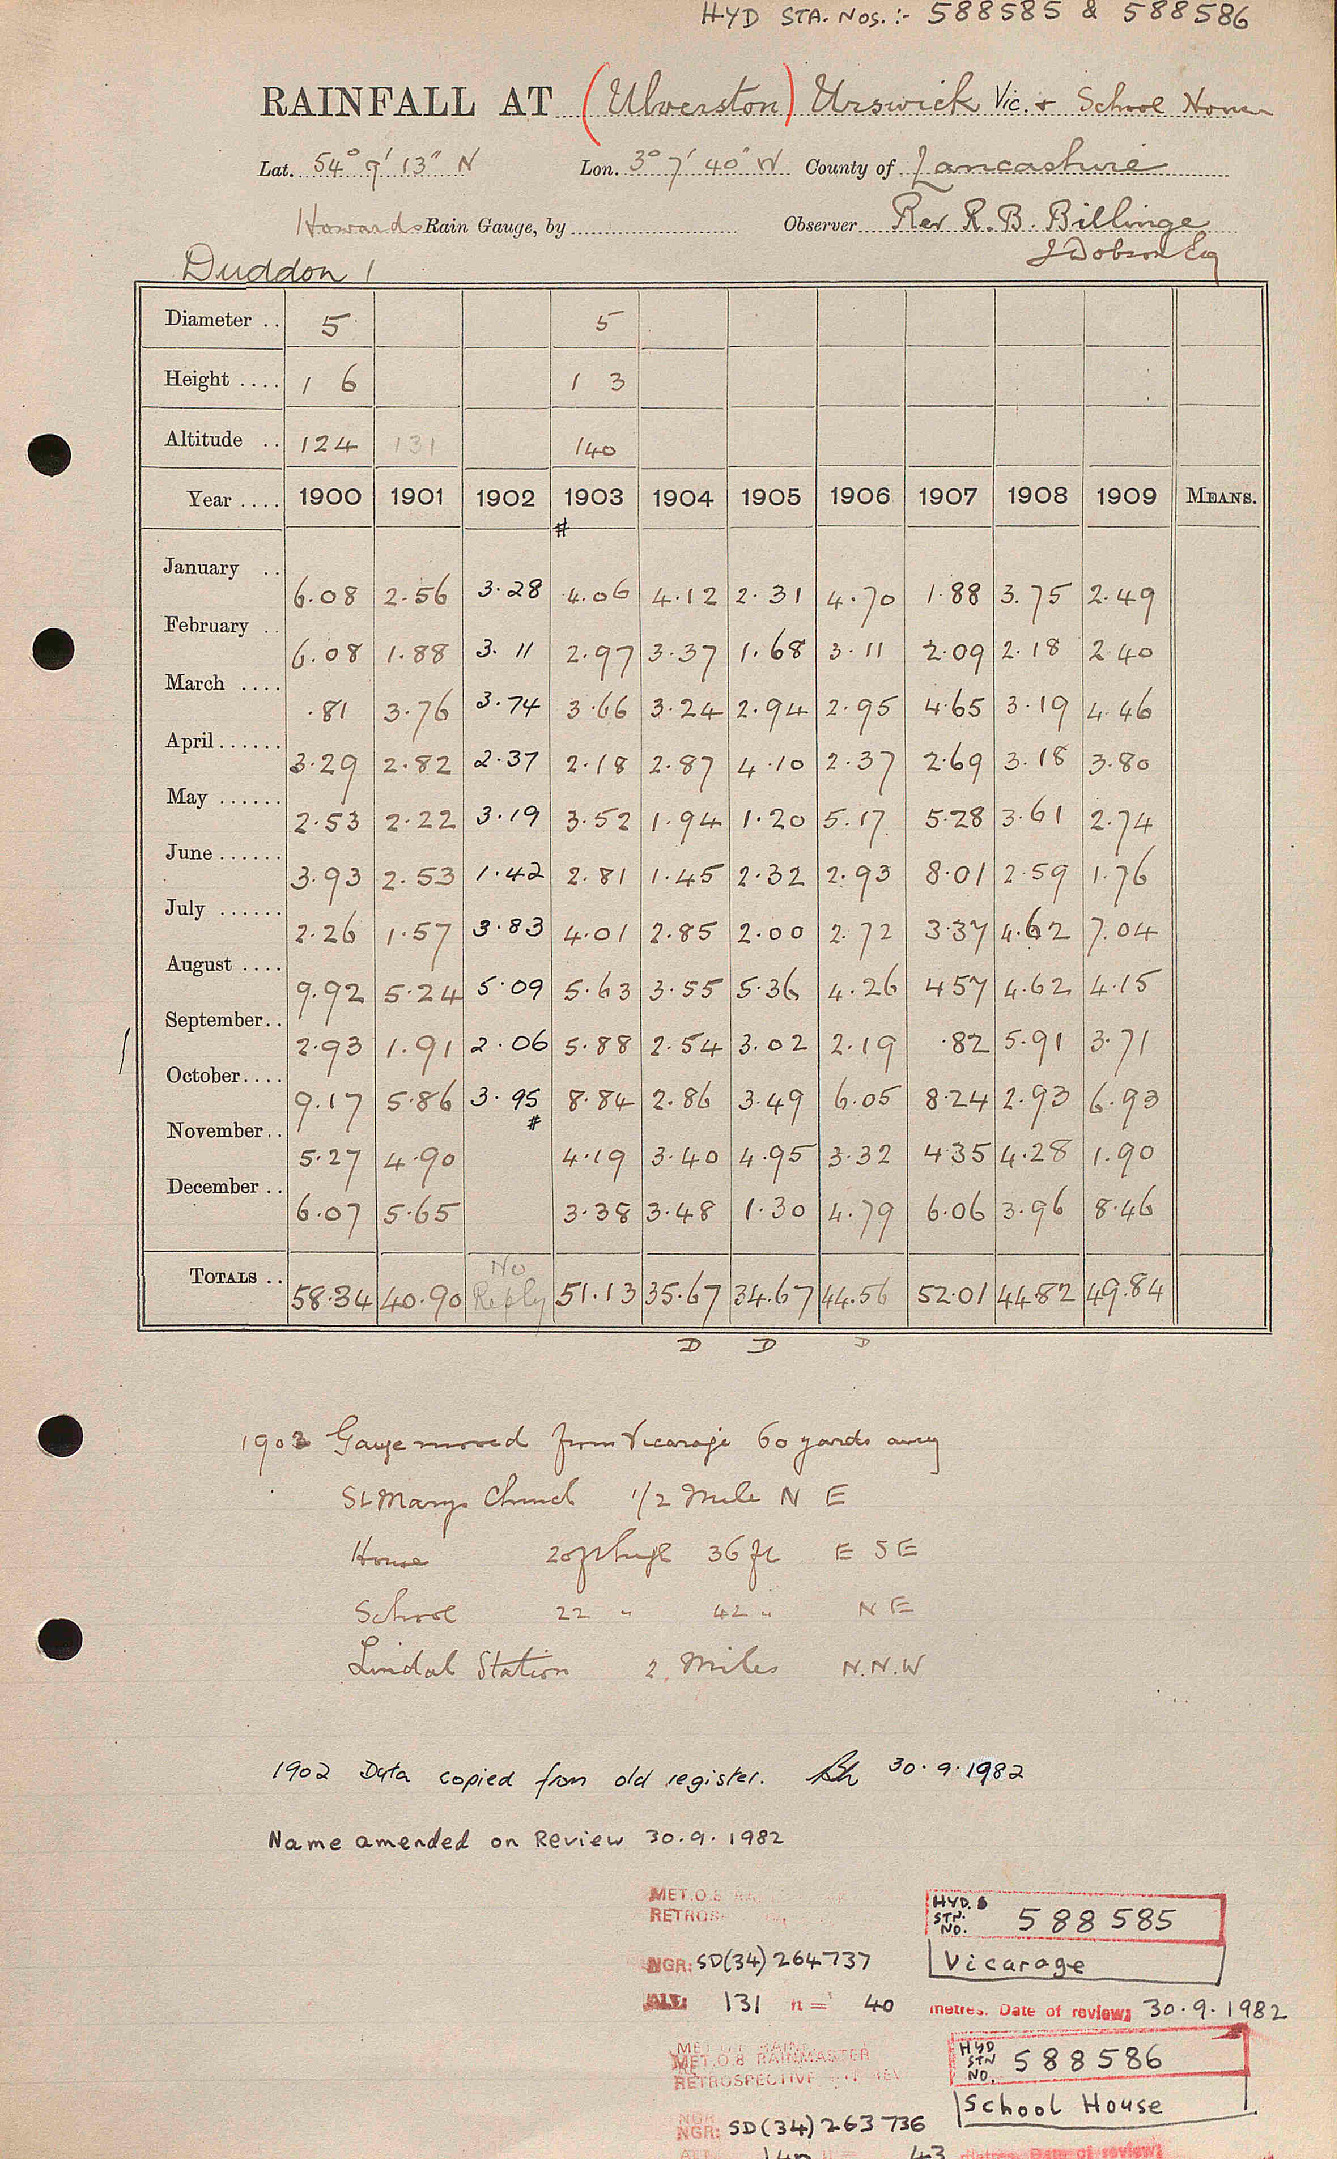 HYD STA. Nos. :- 588585 & 588586
RAINFALL AT (Ulverston) Urswick Vic. & School House
Lat. 54° 9' 13" N Lon. 3° 7' 40" W County of Lancashire
Howards Rain Gauge, by Observer Rev R. B. Billinge
J Dobson Esq
Duddon 1
Diameter .. 5 5
Height .... 1 6 1 3
Altitude .. 124 131 140
Year .... 1900 1901 1902 1903 1904 1905 1906 1907 1908 1909 MEANS.
#
January .. 6.08 2.56 3.28 4.06 4.12 2.31 4.70 1.88 3.75 2.49
February .. 6.08 1.88 3.11 2.97 3.37 1.68 3.11 2.09 2.18 2.40
March .... .81 3.76 3.74 3.66 3.24 2.94 2.95 4.65 3.19 4.46
April ...... 3.29 2.82 2.37 2.18 2.87 4.10 2.37 2.69 3.18 3.80
May ...... 2.53 2.22 3.19 3.52 1.94 1.20 5.17 5.28 3.61 2.74
June ...... 3.93 2.53 1.42 2.81 1.45 2.32 2.93 8.01 2.59 1.76
July ...... 2.26 1.57 3.83 4.01 2.85 2.00 2.72 3.37 4.62 7.04
August .... 9.92 5.24 5.09 5.63 3.55 5.36 4.26 4.57 4.62 4.15
September .. 2.93 1.91 2.06 5.88 2.54 3.02 2.19 .82 5.91 3.71
October .... 9.17 5.86 3.95 8.84 2.86 3.49 6.05 8.24 2.93 6.93
#
November .. 5.27 4.90 4.19 3.40 4.95 3.32 4.35 4.28 1.90
December .. 6.07 5.65 3.38 3.48 1.30 4.79 6.06 3.96 8.46
TOTALS .. 58.34 40.90 No Reply 51.13 35.67 34.67 44.56 52.01 44.82 49.84
D D D
1903 Gauge moved from Vicarage 60 yards away
St Marys Church 1/2 Mile N E
House 20ft high 36 ft E S E
School 22 " 42 " N E
Lindal Station 2 Miles N.N.W
1902 Data copied from old register. 30.9.1982
Name amended on Review 30.9.1982
MET.O.8
RETROS
HYD. STN. NO. 588585
NGR: SD(34) 264737
Vicarage
ALT: 131 ft = 40 metres. Date of review: 30.9.1982
MET.O.8 RAINMASTER
RETROSPECTIVE
HYD STN NO. 588586
School House
NGR: SD(34) 263736
ALT 140 ft = 43 metres. Date of review: